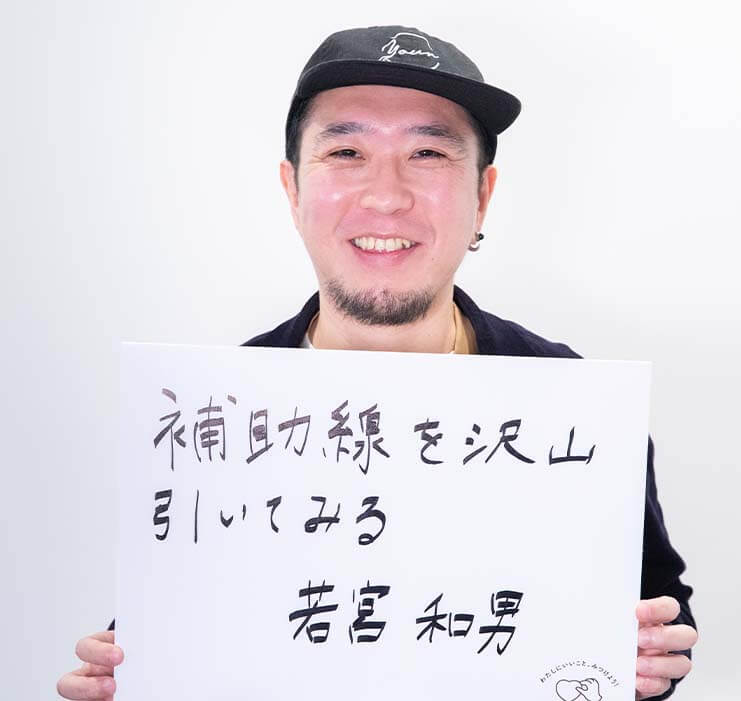 Youn
補助線を沢山
引いてみる
若宮 和男
わたしにいいこと、みつけよう!